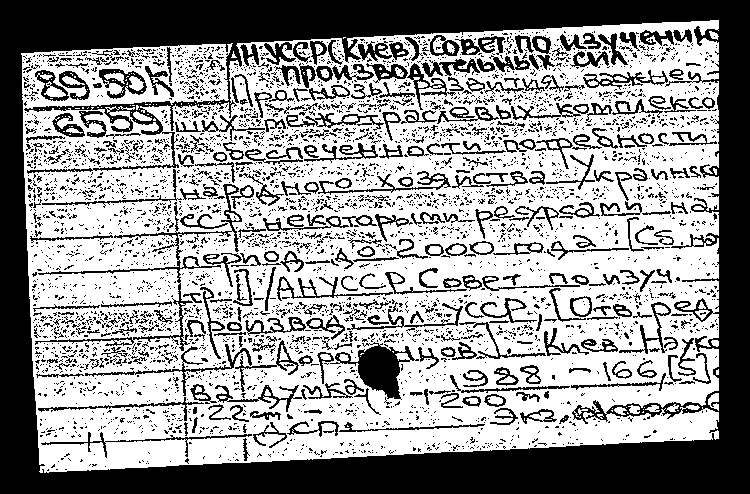 АН УССР (Киев) Совет по изучению
производительных сил
89-50К
Прогнозы развития важней-
6559
ших межотраслевых комплексо
и обеспеченности потребности
народного хозяйства Украинско
ССР некоторыми ресурсами на
период до 2000 года: [Сб. на
тр.] / АН УССР. Совет по изуч.
производ. сил УССР; [Отв. ред
С. И. Доро нцов]. - Киев: Науко
ва думка, 1988. - 166, [5] с
; 22 см. - 200
ДСП. Экз.
Ч